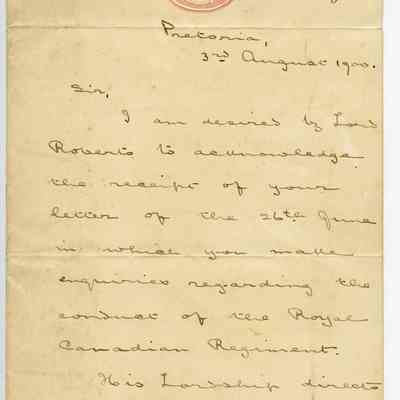 Pretoria,
3rd August 1900.
Sir,
I am desired by Lord
Roberts to acknowledge
the receipt of your
letter of the 26th June
in which you make
enquiries regarding the
conduct of the Royal
Canadian Regiment.
His Lordship directs